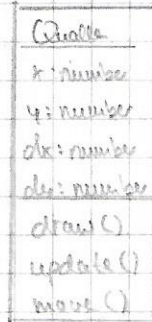 Qualle
x: number
y: number
dx: number
dy: number
draw()
update()
move()